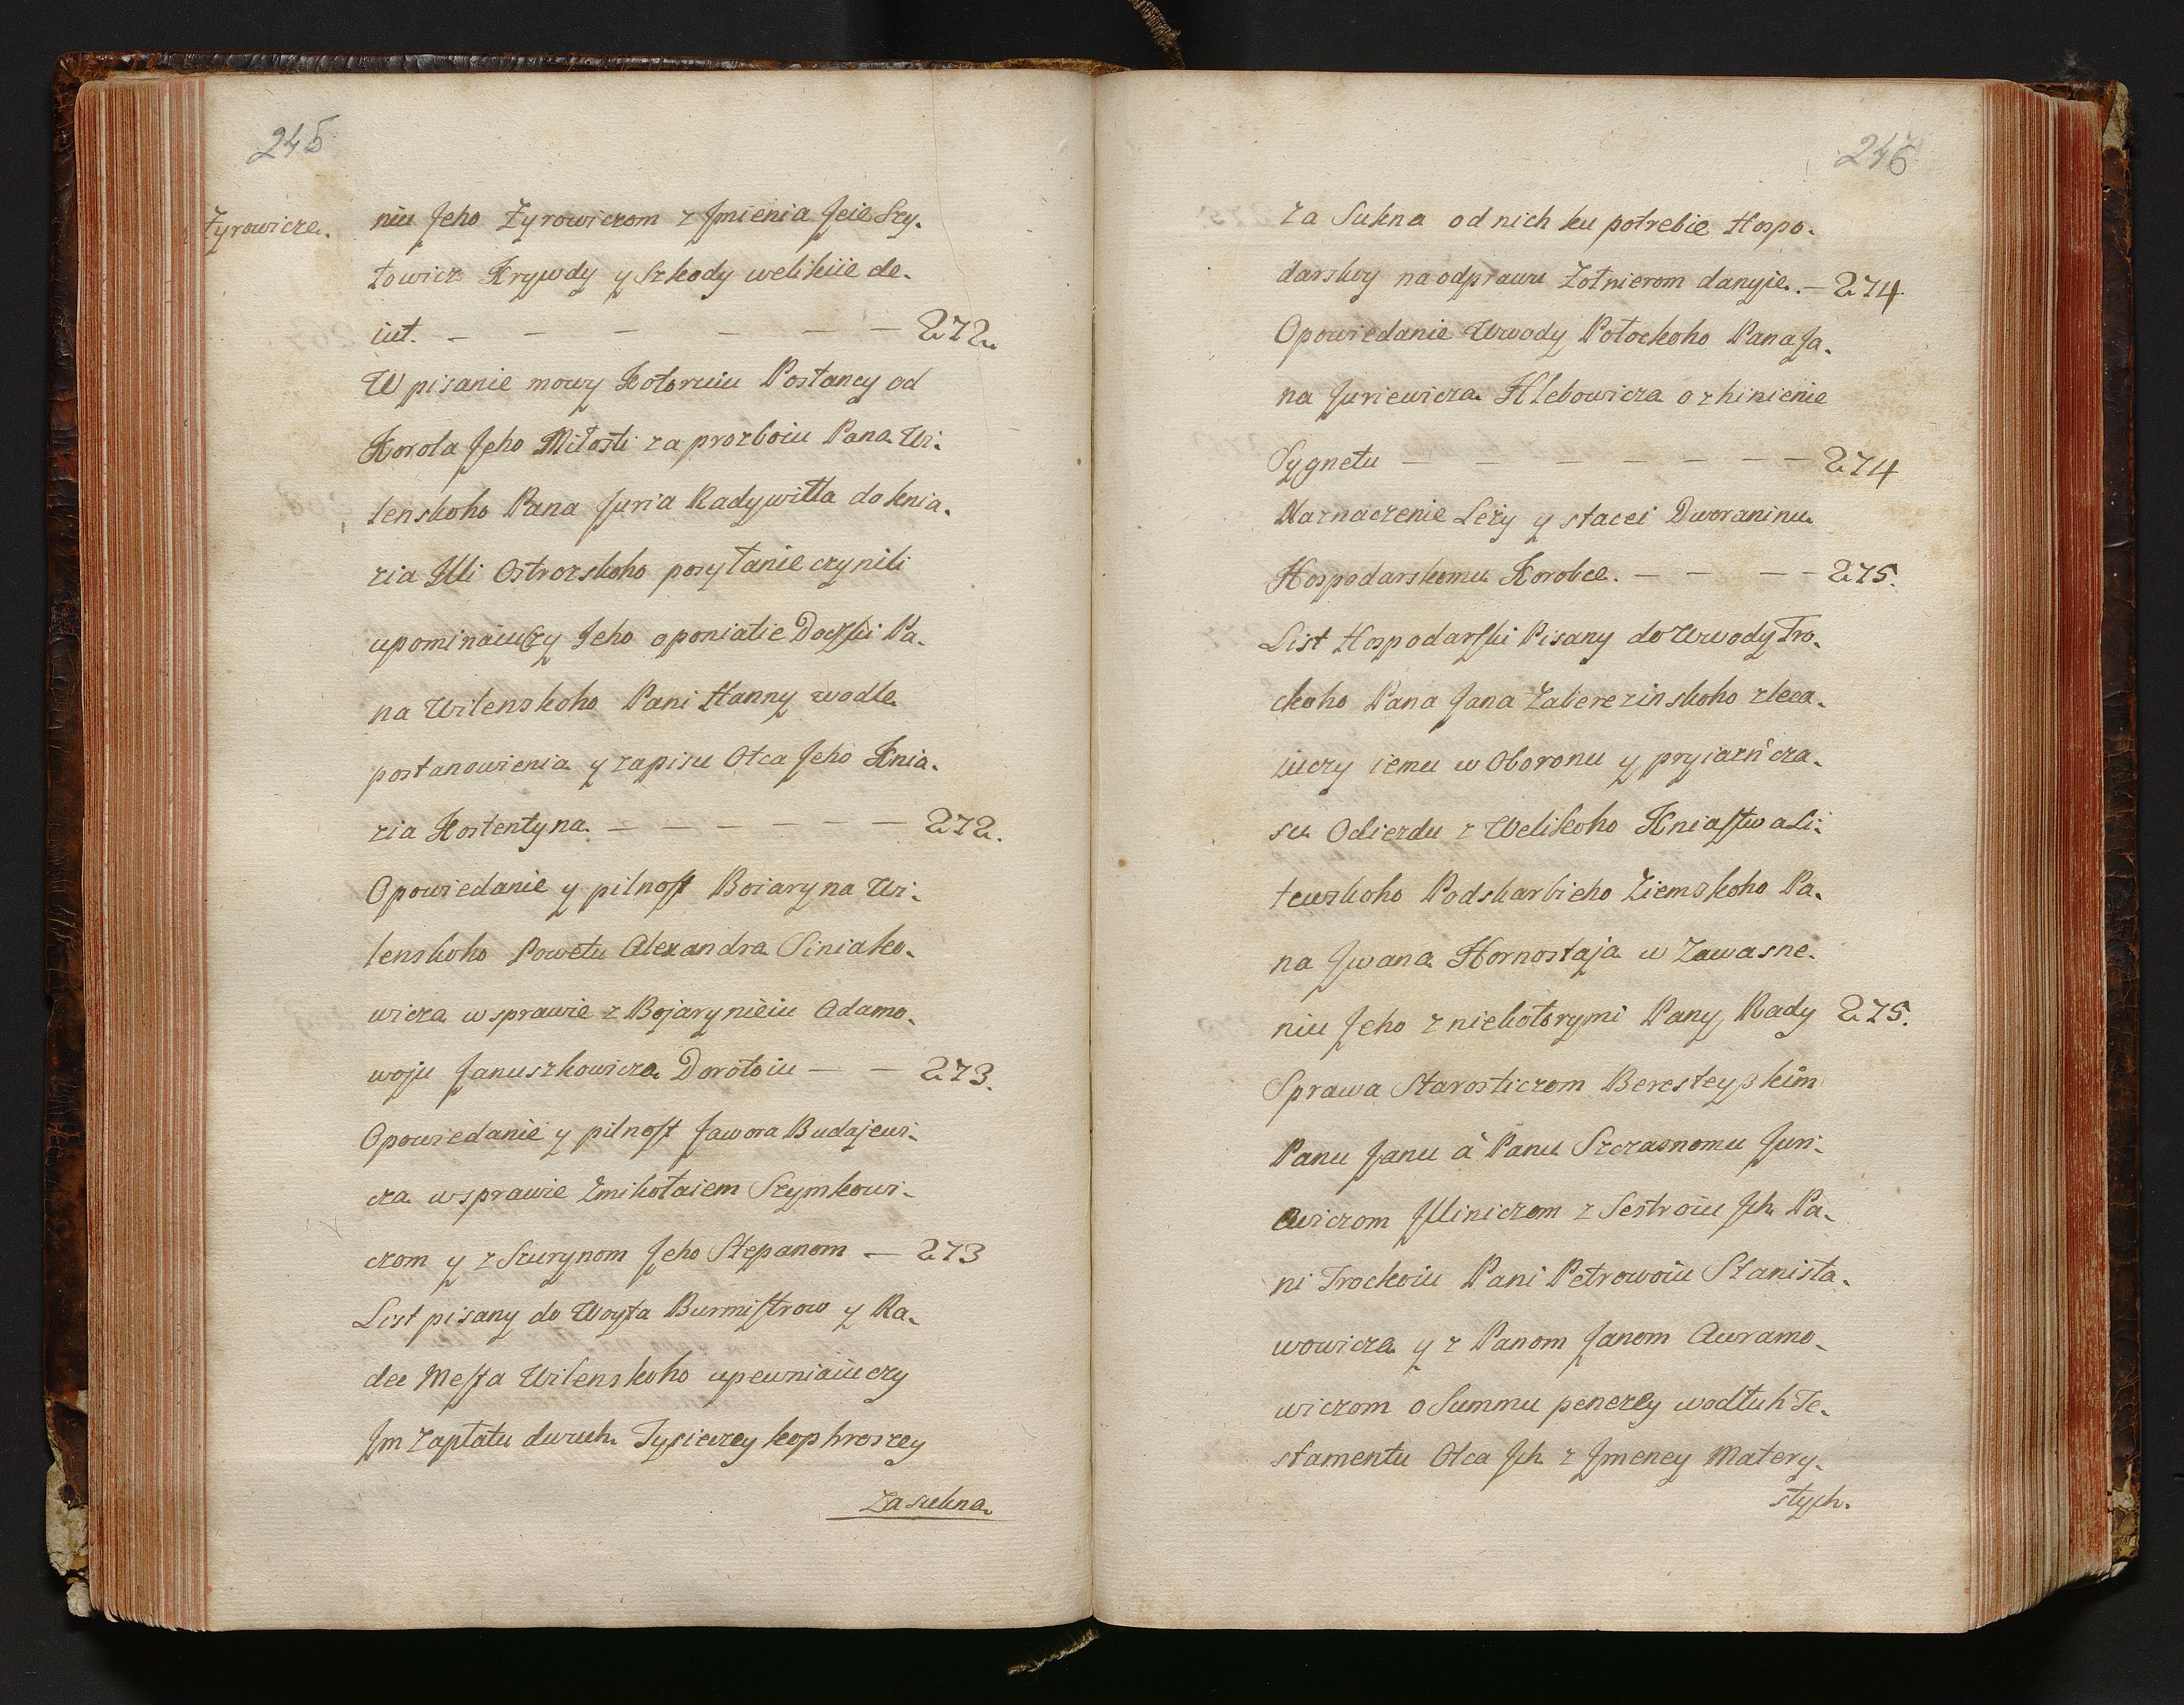 245
Żyrowicze.
niu Jeho Żyrowiczom z Jmienia Jeie Szy-
łowicz Krywdy y Szkody welikiie de-
iut. — — — — — — 272.
Wpisanie mowy Kotoruiu Posłancy od
Korola Jeho Miłosti za prozboiu Pana Wi-
lenskoho Pana Juria Radywiłła do knia-
zia Jlli Ostrozskoho posyłanie czynili
upominaiuczy Jeho o poniatie Doczki Pa-
na Wilenskoho Pani Hanny wodle
postanowienia y zapisu Otca Jeho Knia-
zia Kostentyna. — — — — — — 272.
Opowiedanie y pilnost Boiaryna Wi-
lenskoho Powetu Alexandra Siniako-
wicza w sprawie z Bojaryniëiu Adamo-
woju Januszkowicza Dorotoiu — — 273.
Opowiedanie y pilnost Jawora Budajewi-
cza w sprawie Zmikołaiem Szymkowi-
czom y z Szurynom Jeho Stepanom — 273
List pisany do Woyta Burmistrow y Ra-
dec Mesta Wilenskoho upewniaiuczy
Jm Zapłatu dwuch Tysieczey kop hroszey
Za sukna.
246
Za Sukna od nich ku potrebie Hospo-
darskoy na odprawu Żołnierom danyie. — 274.
Opowiedanie Wwody Połockoho Pana Ja-
na Juriewicza Hlebowicza o zhinienie
Sygnetu — — — — — — — 274
Naznaczenie Leży y stacei Dworaninu
Hospodarskomu Korobce. — — — — 275.
List Hospodarski Pisany do Wwody Tro-
ckoho Pana Jana Zaberezinskoho zleca-
iuczy iemu w Oboronu y pryiazń cza-
su Odiezdu z Welikoho Kniastwa Li-
tewskoho Podskarbieho Ziemskoho Pa-
na Jwana Hornostaja w Zawasne-
niu Jeho z niekotorymi Pany Rady 275.
Sprawa Starosticzom Beresteyskim
Panu Janu à Panu Szczasnomu Juri-
ewiczom Jlliniczom z Sestroiu Jch Pa-
ni Trockoiu Pani Petrowoiu Stanisła-
wowicza y z Panom Janom Awramo-
wiczom o Summu penezey wodłuh Te-
stamentu Otca Jch z Jmeney Matery-
stych.